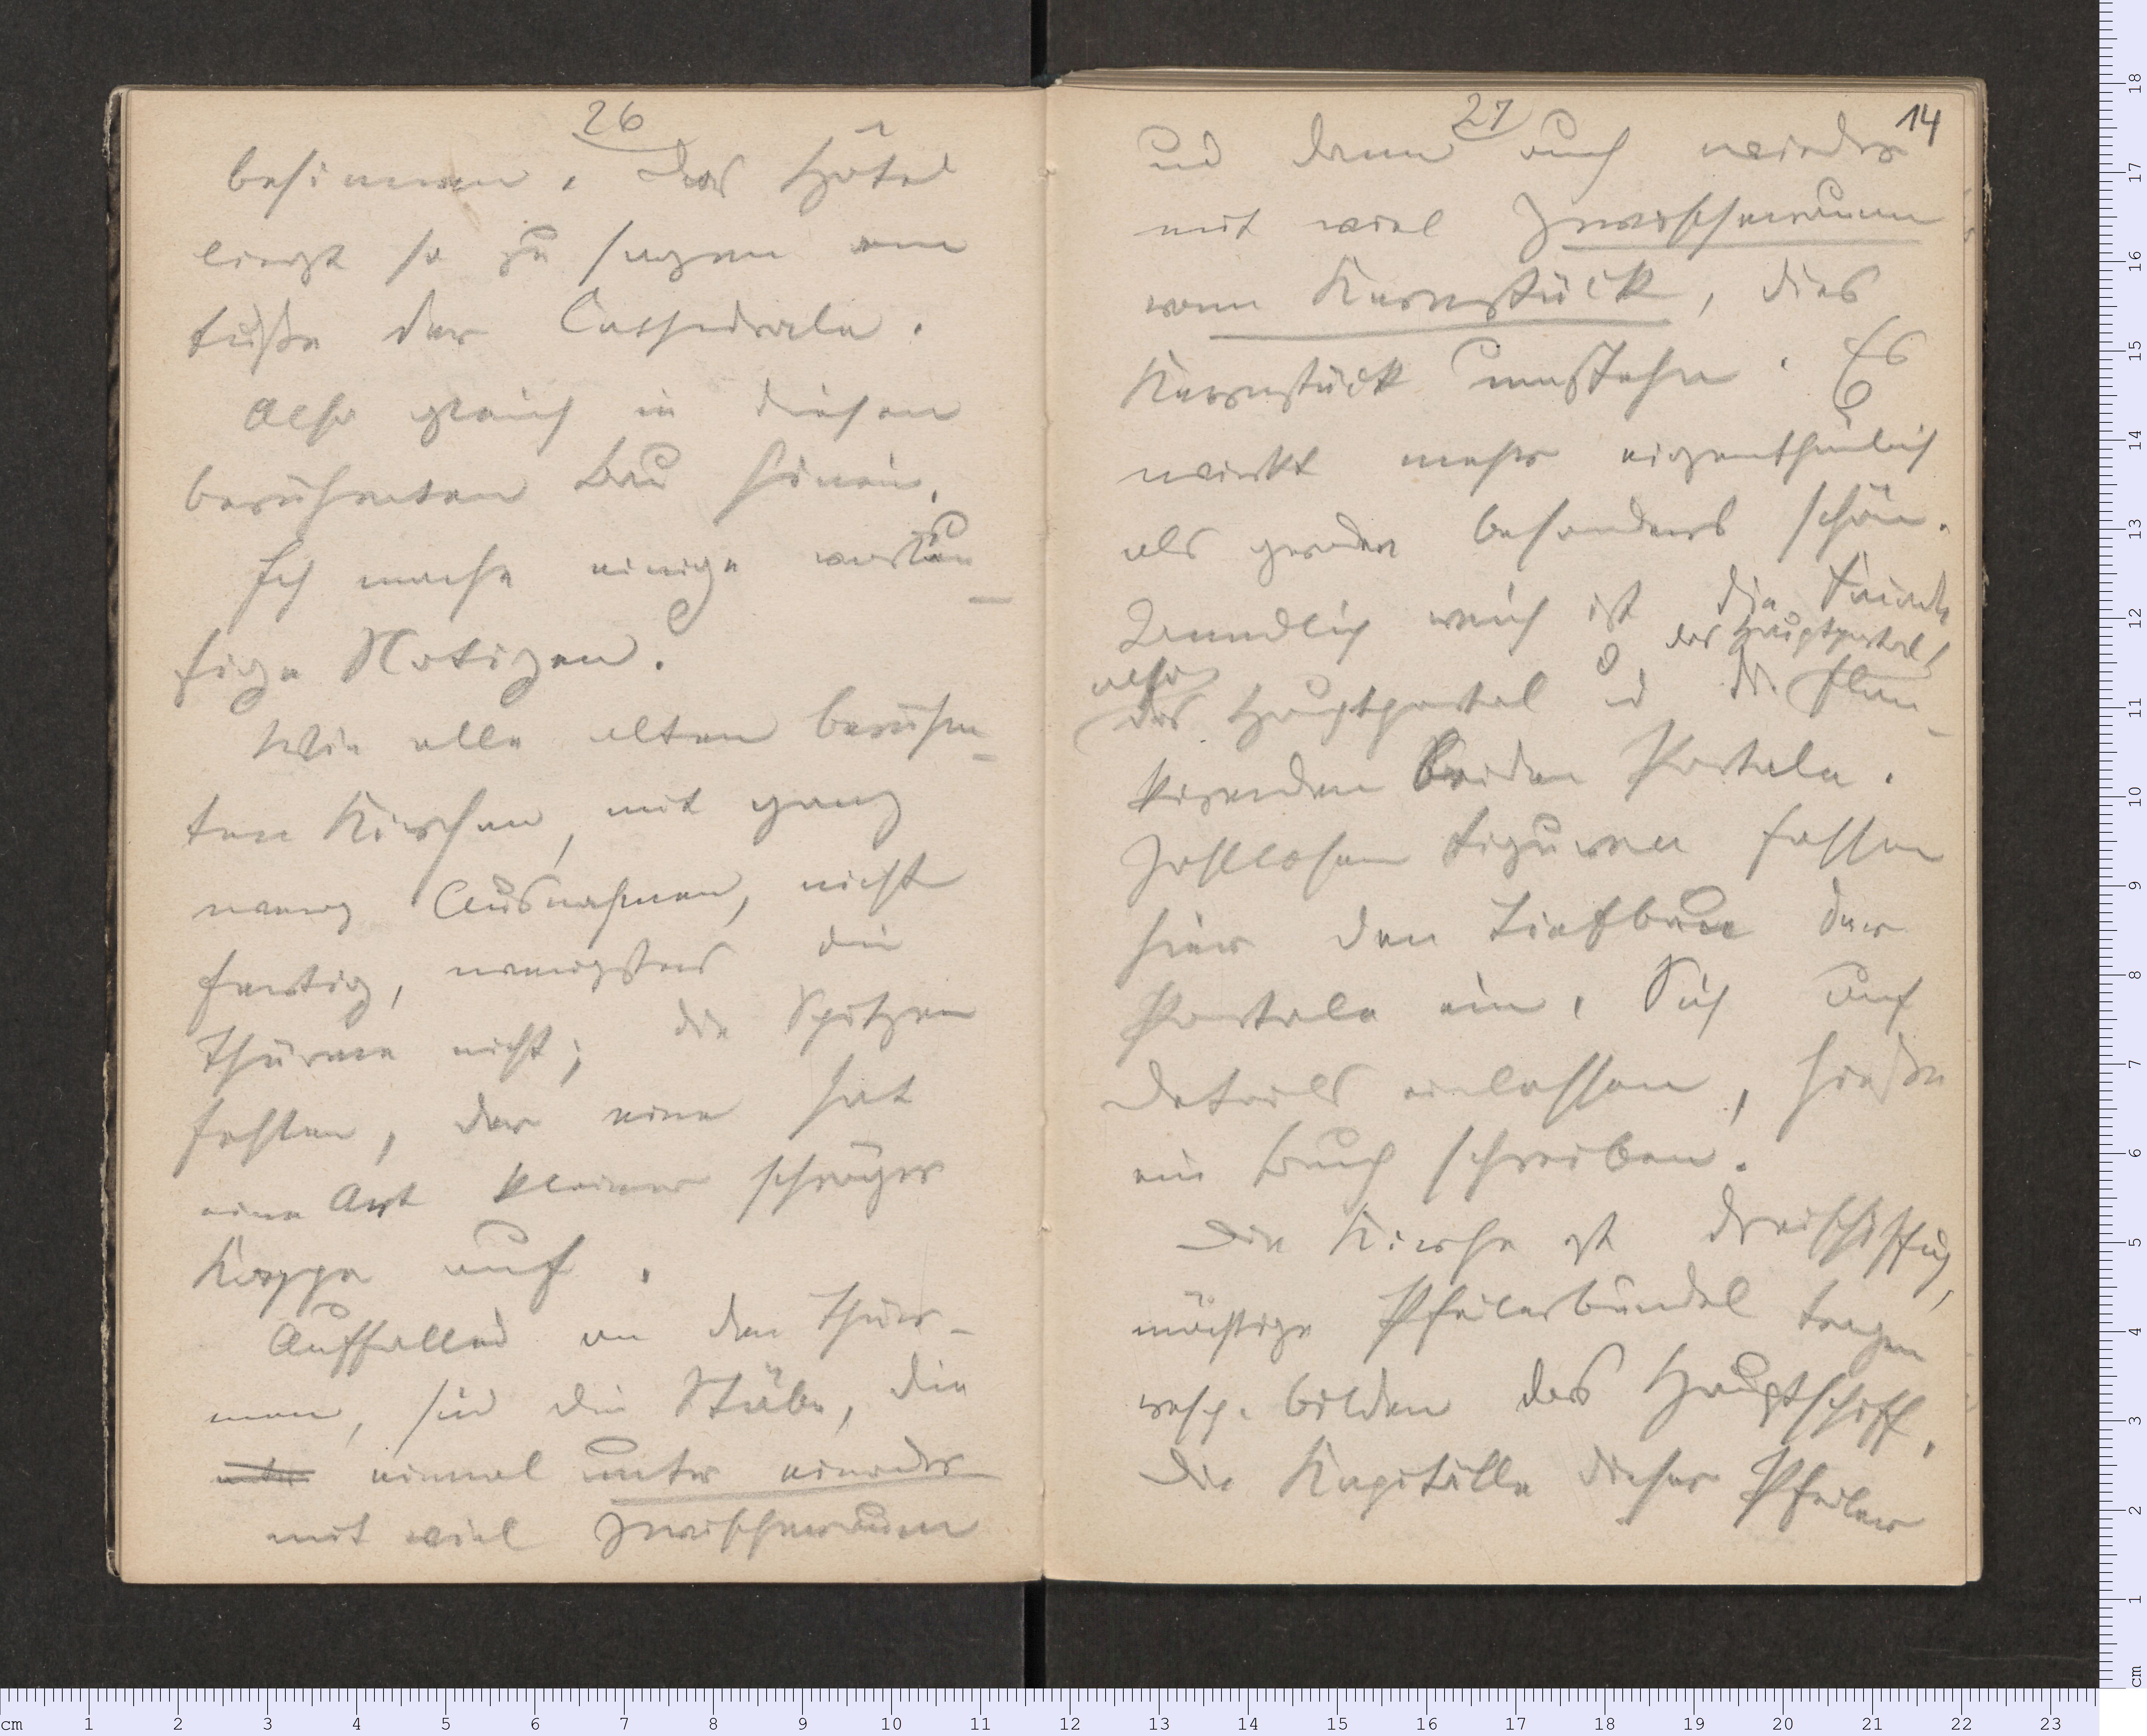 26
besinnen. Das Hôtel
liegt so zu sagen am
Fuße der Cathedrale.
Also gleich in diesen
berühmten Bau hinein.
Ich mache einige vorläu-
fige Notizen.
Wie alle alten berühm-
ten Kirchen, mit ganz
wenig Ausnahmen, nicht
fertig, wenigstens die
Thürme nicht; die Spitzen
fehlen, der eine hat
eine Art kleiner schräger
Kappe auf.
Auffallend an den Thür-
men, sind die Stäbe, die
unter einmal unter einander
mit viel Zwischenraum
27
14
und dann auch wieder
mit viel Zwischenraum
vom Kernstück, dies
Kernstück umstehn. Es
wirkt mehr eigenthümlich
als gerade besonders schön.
Ziemlich reich ist die Fronte
des Hauptportals
also
das Hauptportal und die flan-
kirenden beiden Portale.
Zahllosen Figuren fassen
hier den Tiefbau der
Portale ein. Sich auf
Details einlassen, hieße
ein Buch schreiben.
Die Kirche ist dreischiffig,
mächtige Pfeilerbündel tragen
resp. bilden das Hauptschiff.
Die Kapitälle dieser Pfeiler